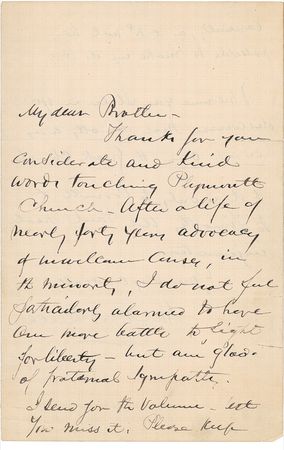 My dear Brother -
Thanks for your
considerate and kind
words touching Plymouth
Church - After a life of
nearly forty years advocacy
of unwelcome causes, in
the minority, I do not feel
alarmed to have
one more battle to fight
for liberty - but am glad
of fraternal sympathy.
I send for the volume -
You miss it. Please keep